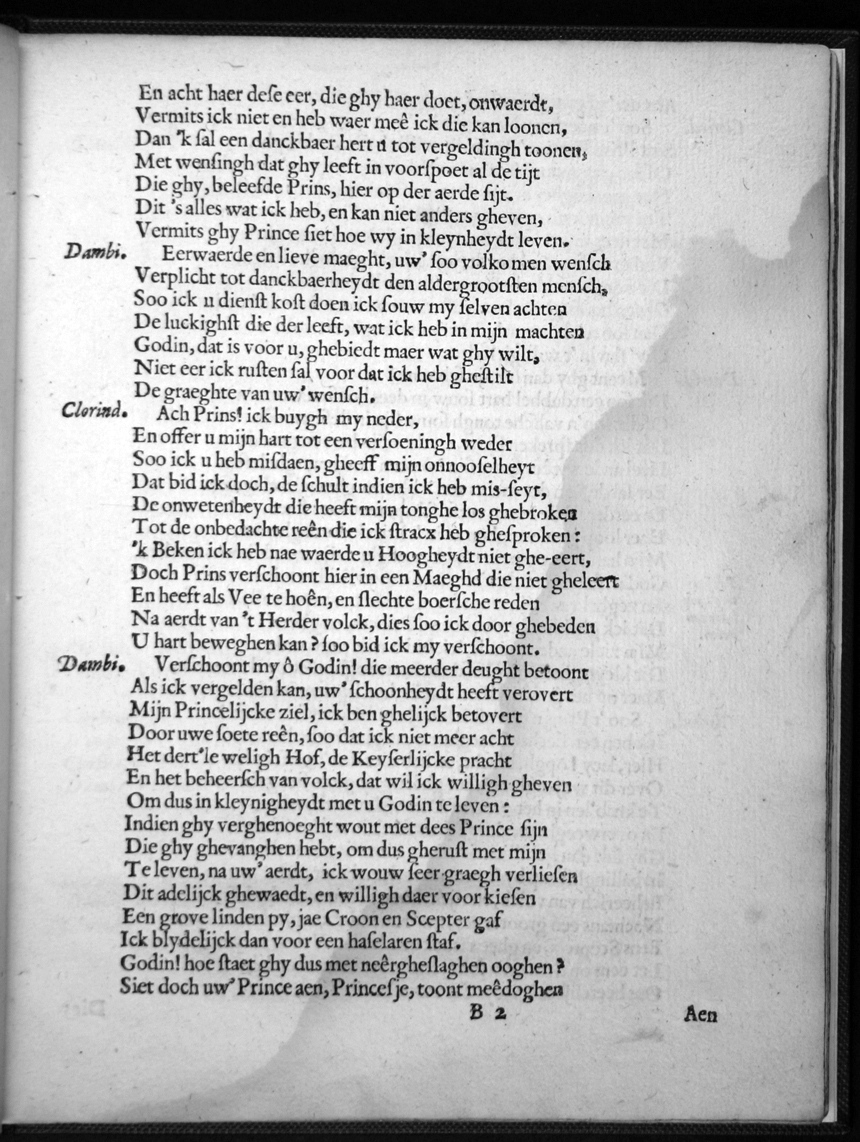 En acht haer deſe eer, die ghy haer doet, onwaerdt,
Vermits ick niet en heb waer meê ick die kan loonen,
Dan 'k ſal een danckbaer hert u tot vergeldingh toonen,
Met wenſingh dat ghy leeft in voorſpoet al de tijt
Die ghy, beleefde Prins, hier op der aerde ſijt.
Dit 's alles wat ick heb, en kan niet anders gheven,
Vermits ghy Prince ſiet hoe wy in kleynheydt leven.
Dambi. Eerwaerde en lieve maeght, uw' ſoo volkomen wenſch
Verplicht tot danckbaerheydt den aldergrootſten menſch,
Soo ick u dienſt koſt doen ick ſouw my ſelven achten
De luckighſt die der leeft, wat ick heb in mijn machten
Godin, dat is voor u, ghebiedt maer wat ghy wilt,
Niet eer ick ruſten ſal voor dat ick heb gheſtilt
De graeghte van uw' wenſch.
Clorind. Ach Prins! ick buygh my neder,
En offer u mijn hart tot een verſoeningh weder
Soo ick u heb miſdaen, gheeff mijn onnooſelheyt
Dat bid ick doch, de ſchult indien ick heb mis-ſeyt,
De onwetenheydt die heeft mijn tonghe los ghebroken
Tot de onbedachte reên die ick ſtracx heb gheſproken:
'k Beken ick heb nae waerde u Hoogheydt niet ghe-eert,
Doch Prins verſchoont hier in een Maeghd die niet gheleert
En heeft als Vee te hoên, en ſlechte boerſche reden
Na aerdt van 't Herder volck, dies ſoo ick door ghebeden
U hart beweghen kan? ſoo bid ick my verſchoont.
Dambi. Verſchoont my ô Godin! die meerder deught betoont
Als ick vergelden kan, uw' ſchoonheydt heeft verovert
Mijn Princelijcke ziel, ick ben ghelijck betovert
Door uwe ſoete reên, ſoo dat ick niet meer acht
Het dert'le weligh Hof, de Keyſerlijcke pracht
En het beheerſch van volck, dat wil ick willigh gheven
Om dus in kleynigheydt met u Godin te leven:
Indien ghy verghenoeght wout met dees Prince ſijn
Die ghy ghevanghen hebt, om dus gheruſt met mijn
Te leven, na uw' aerdt, ick wouw ſeer graegh verlieſen
Dit adelijck ghewaedt, en willigh daer voor kieſen
Een grove linden py, jae Croon en Scepter gaf
Ick blydelijck dan voor een haſelaren ſtaf.
Godin! hoe ſtaet ghy dus met neêrgheſlaghen ooghen?
Siet doch uw' Prince aen, Princeſje, toont meêdoghen
B 2 Aen